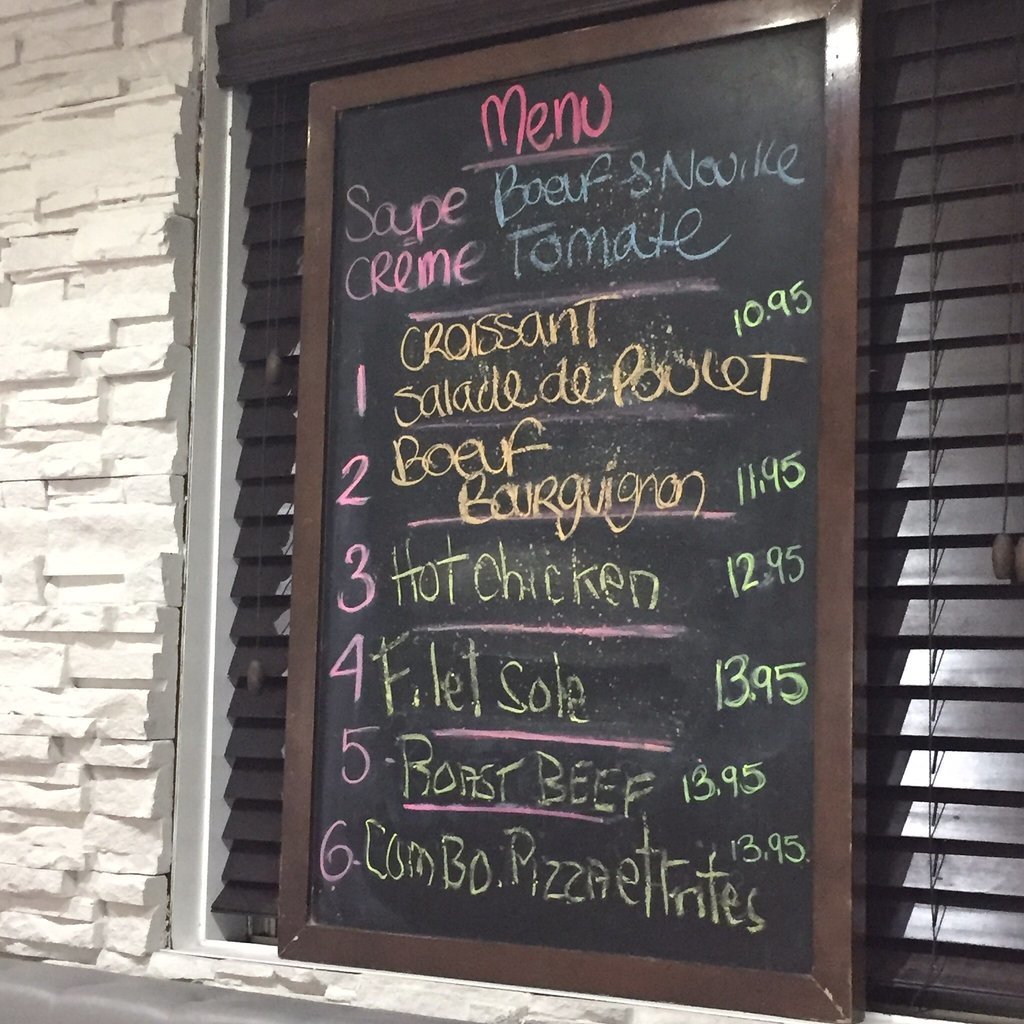 Menu
Soupe Boeuf & Nouille
Crème Tomate
Croissant 10.95
1 Salade de Poulet
2 Boeuf
Bourguignon 11.95
3 Hot Chicken 12.95
4 Filet Sole 13.95
5 - Roast BEEF 13.95
6 - Combo. Pizza et Frites 13.95